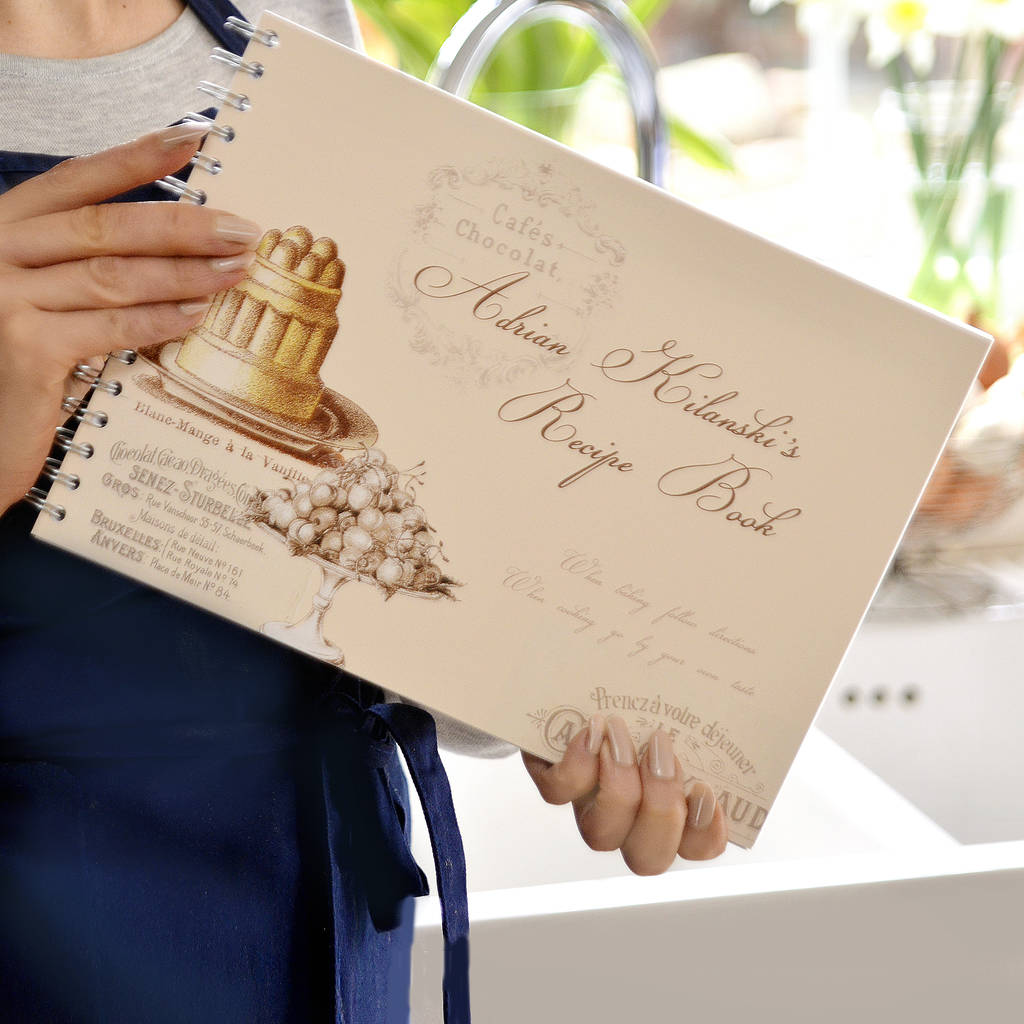 Cafés
Chocolat.
Adrian Kilanski's
Recipe Book
Blanc-Mange à la Vanille
Chocolat Cacao Dragées
SENEZ-STURBELLE
GROS: Rue Vanschoor 55-57, Schaerbeek.
Maisons de détail:
BRUXELLES: Rue Neuve Nº 161
Rue Royale Nº 74
ANVERS: Place de Meir Nº 84.
When baking follow directions
When cooking go by your own taste
Prenez à votre déjeuner
LE
AUD